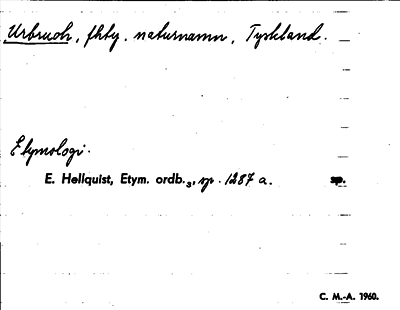 Urbruch, fhty. naturnamn, Tyskland.
Etymologi.
E. Hellquist, Etym. ordb.₃, sp. 1287 a. sp.
C. M.-A. 1960.